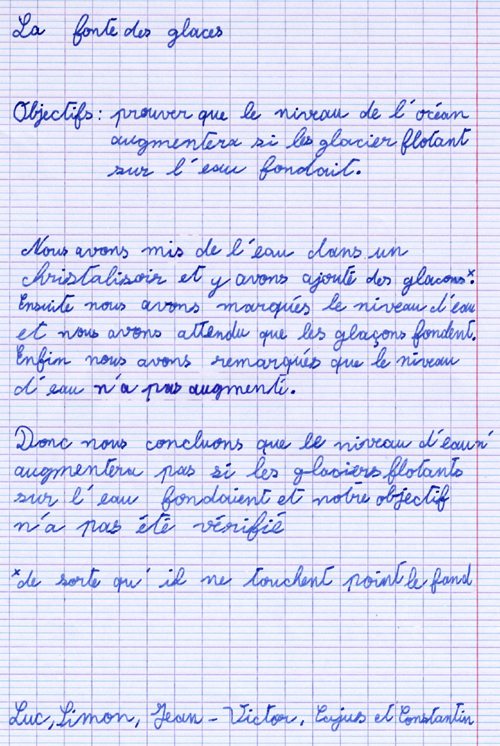 La fonte des glaces
Objectifs: prouver que le niveau de l'océan
augmentera si les glacier flotant
sur l'eau fondait.
Nous avons mis de l'eau dans un
christalisoir et y avons ajouté des glacons*.
Ensuite nous avons marqués le niveau d'eau
et nous avons attendu que les glaçons fondent.
Enfin nous avons remarqués que le niveau
d'eau n'a pas augmenté.
Donc nous concluons que le niveau d'eau n'
augmentera pas si les glaciers flotants
sur l'eau fondaient et notre objectif
n'a pas été vérifié
*de sorte qu'il ne touchent point le fond
Luc, Simon, Jean-Victor, Cajus et Constantin